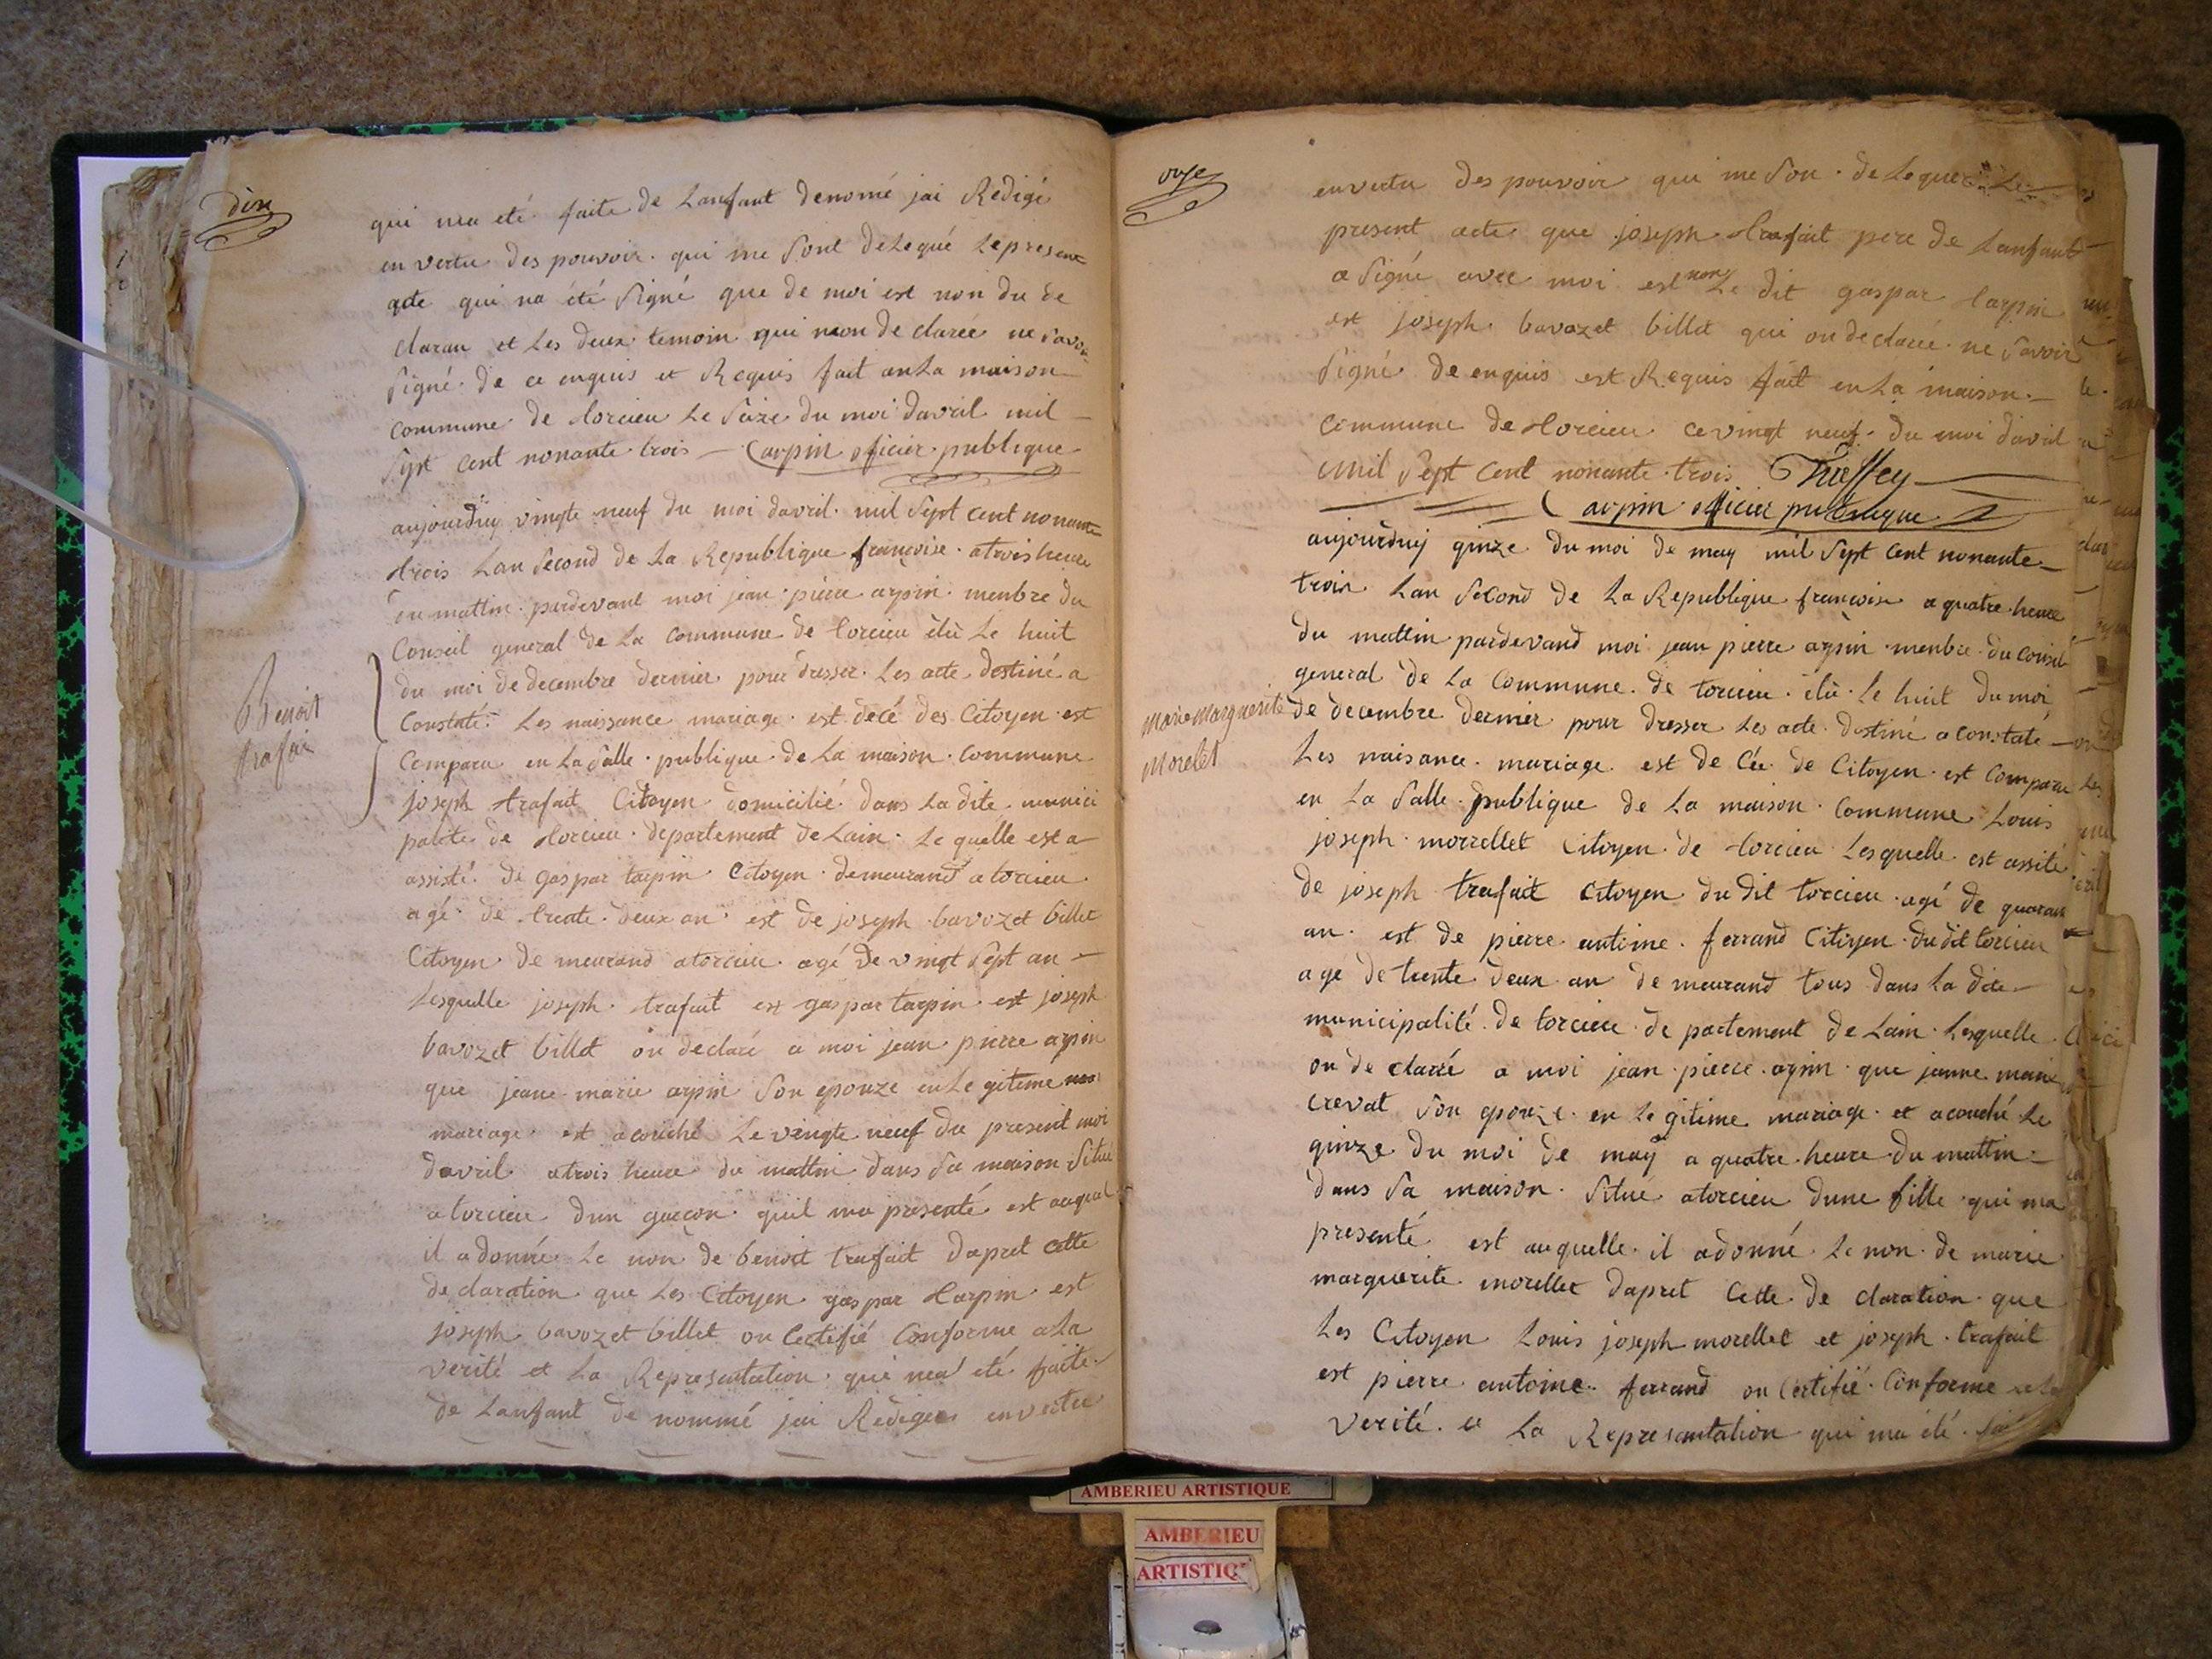 dix
qui ma eté faite de Lanfant denomé jai Redigé
en vertu des pouvoir qui me Sont delegué Lepresent
acte qui na été Signé que de moi est non du de
claran et Les deux temoin qui mon declarée ne Savoir
Signé de ce enquis et Requis fait en La maison
commune de torcieu Le Seize du moi davril mil
Sept cent nonante trois — Carpin oficier publique
aujourduy vingte neuf du moi davril mil Sept cent nonante
trois Lan Second de La Republique françoise a trois heure
du mattin pardevant moi jean pierre arpin menbre du
Conseil general de La commune de torcieu élu Le huit
du moi de decembre dernier pour dresser Les acte destiné a
Constaté Les naissance mariage est decé des Citoyen est
Comparu en La Salle publique de La maison Commune
joseph trafait Citoyen domicilié dans La dite munici
palite de torcieu departement de Lain Le quelle est a
assisté de gaspar tarpin Citoyen demeurand a torcieu
agé de trente deux an est de joseph bavozet billet
Citoyen de meurand atorcieu agé de vingt Sept an —
Lesquelle joseph trafait est gaspar tarpin est joseph
bavozet billet on declaré a moi jean pierre arpin
que jeane marie arpin Son epouze en Legitime
mariage est acouché Le vingte neuf du present moi
davril a trois heure du mattin dans Sa maison Situé
a torcieu dun garçon quil ma presenté est auquel
il a donné Le non de benoit trafait dapret cette
declaration que Les Citoyen gaspar tarpin est
joseph bavozet billet on Certifié Conforme a La
verité et La Representation qui ma été faite
de Lanfant de nommé jai Rediger en vertu
Benoit
trafai
onze
en vertu des pouvoir qui me Son de Leguer Le
present acte que joseph trafait pere de Lanfant
a Signé avec moi est non Le dit gaspar tarpin
est joseph bavozet billet qui on declaré ne Savoir
Signé de enquis est Requis fait en La maison
Commune de torcieu ce vingt neuf du moi davril
mil Sept Cent nonante trois Traffey
Carpin officier publique
aujourduy qinze du moi de may mil Sept Cent nonante
trois Lan Second de La Republique françoise a quatre heure
du mattin pardevand moi jean pierre arpin menbre du conseil
general de La Commune de torcieu élu Le huit du moi
de decembre dernier pour dresser Les acte destiné a constaté
Les naisance mariage est de Cée de Citoyen est Comparu
en La Salle publique de La maison Commune Louis
joseph morrellet Citoyen de torcieu Lesquelle est assité
de joseph trafait Citoyen du dit torcieu agé de quaran
an est de pierre antoine ferrand Citoyen du dit torcieu
agé de trente deux an de meurand tous dans La dite
municipalité de torcieu de partement de Lain Lesquelle
on de claré a moi jean pierre arpin que jeanne marie
crevat Son epouze en Le gitime mariage et acouché Le
qinze du moi de may a quatre heure du mattin
dans Sa maison Situé atorcieu dune fille qui ma
presenté est auquelle il adonné Le non de marie
marguerite morellet dapret Cette de claration que
Les Citoyen Louis joseph morellet et joseph trafait
est pierre antoine ferrand on Certifié Conforme a La
verité et La Representation qui ma été
Marie Marguerite
Morelet
AMBERIEU ARTISTIQUE
AMBERIEU
ARTISTIQ